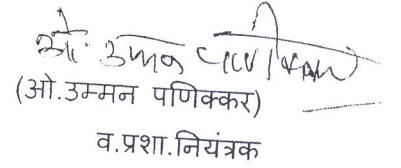 ओ. उम्मन पणिक्कर
(ओ.उम्मन पणिक्कर)
व.प्रशा.नियंत्रक